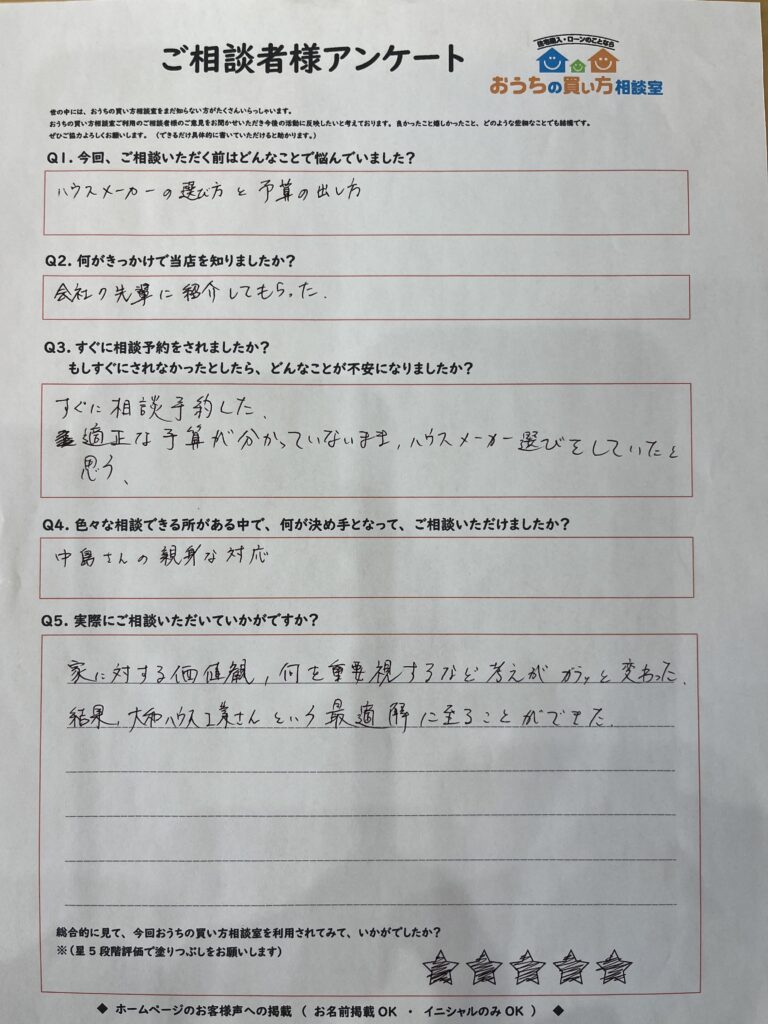 ご相談者様アンケート
住宅購入・ローンのことなら
おうちの買い方相談室
世の中には、おうちの買い方相談室をまだ知らない方がたくさんいらっしゃいます。
おうちの買い方相談室ご利用のご相談者様のご意見をお聞かせいただき今後の活動に反映したいと考えております。良かったこと嬉しかったこと、どのような些細なことでも結構です。
ぜひご協力よろしくお願いします。（できるだけ具体的に書いていただけると助かります。）
Q1. 今回、ご相談いただく前はどんなことで悩んでいましたか？
ハウスメーカーの選び方と予算の出し方
Q2. 何がきっかけで当店を知りましたか？
会社の先輩に紹介してもらった.
Q3. すぐに相談予約をされましたか？
もしすぐにされなかったとしたら、どんなことが不安になりましたか？
すぐに相談予約した、
適正な予算が分かっていないまま, ハウスメーカー選びをしていたと
思う、
Q4. 色々な相談できる所がある中で、何が決め手となって、ご相談いただけましたか？
中島さんの親身な対応
Q5. 実際にご相談いただいていかがですか？
家に対する価値観, 何を重要視するなど考えがガラッと変わった.
結果, 大和ハウス工業さんという最適解に至ることができた.
総合的に見て、今回おうちの買い方相談室を利用されてみて、いかがでしたか？
※（星5段階評価で塗りつぶしをお願いします）
◆ ホームページのお客様声への掲載 （ お名前掲載OK ・ イニシャルのみOK ） ◆